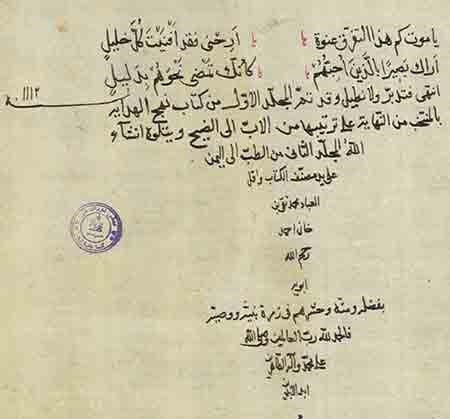 يا موت كم هذا التفرق عنوة ارحني فقد افنيت كل خليل
اراك بصيرا بالذين احبهم كانك تنضى نحوهم بدليل
انتهى فتدبر ولا تطيل وقد تم المجلد الاول من كتاب منهج الهداية
۱۱۱۲
المنتخب من النهاية على ترتيبها من الاب الى الضيح ويتلوه انشاء
الله المجلد الثاني من الطب الى اليمن
على يد مصنف الكتاب واقل
العباد محمد تقي بن
خان احمد
رحمهم الله
بفضله ومنه وحشرهم في زمرة نبيه ووصيه
فالحمد لله رب العالمين وصلى الله
على محمد وآله الطاهرين